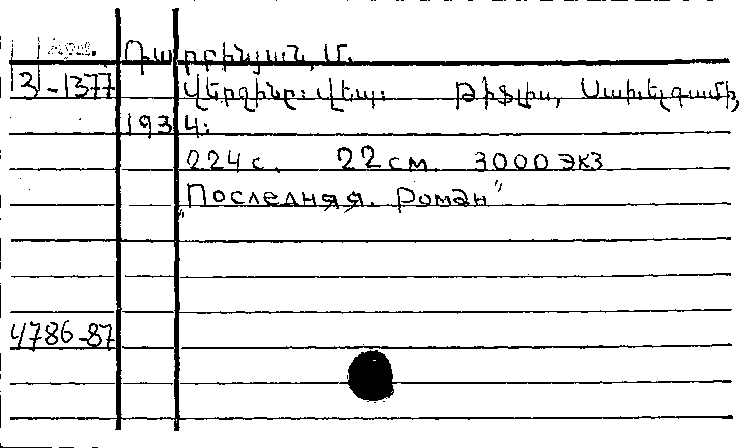 Арм. Դարբինյան, Մ.
3-1377 Վերջինը: վեպ: Թիֆլիս, Սախելգամի,
1934:
224 с. 22 см. 3000 экз
"Последняя. Роман"
4786-87